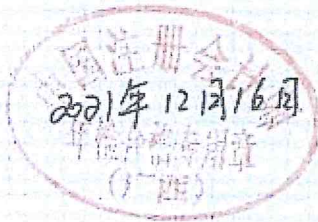 国注册会计
2021年12月16日
年检合格专用章
(广西)